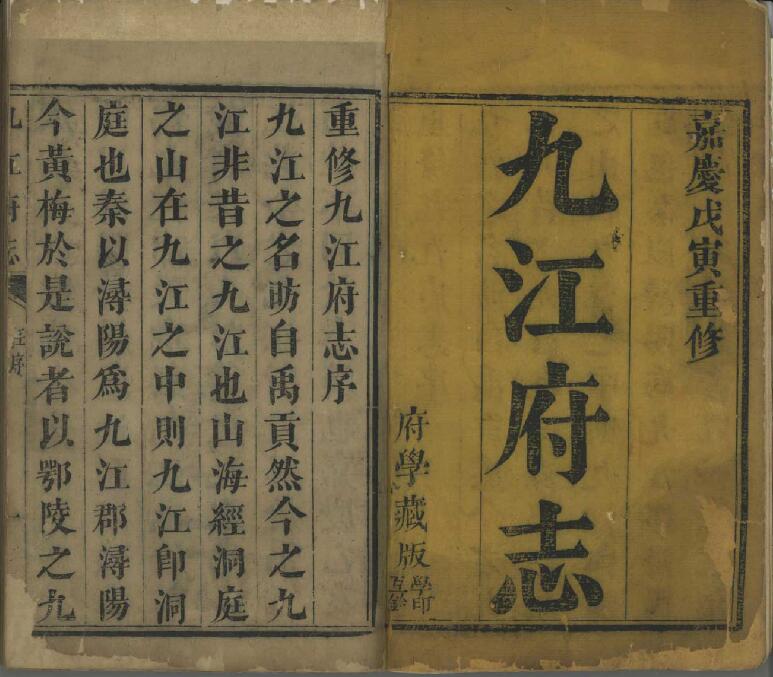 嘉慶戊寅重修
九江府志
府學藏版
重修九江府志序
九江之名昉自禹貢然今之九
江非昔之九江也山海經洞庭
之山在九江之中則九江卽洞
庭也秦以潯陽爲九江郡潯陽
今黃梅於是說者以鄂陵之九
九江府志
序